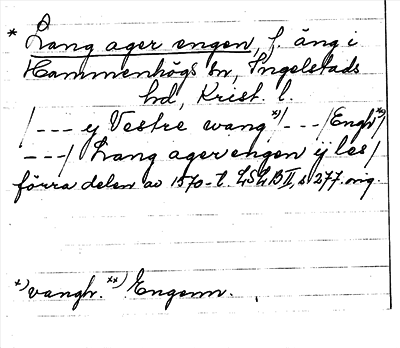 * Lang ager engen, f. äng i
Hammenhögs sn, Ingelstads
hd, Krist. l.
/--- y Vestre wang x)/---/Engh xx)
---/ Lang ager engen ÿ les/
förra delen av 1570-t. LSLB II, s 277. orig.
x) vangh. xx) Engenn.